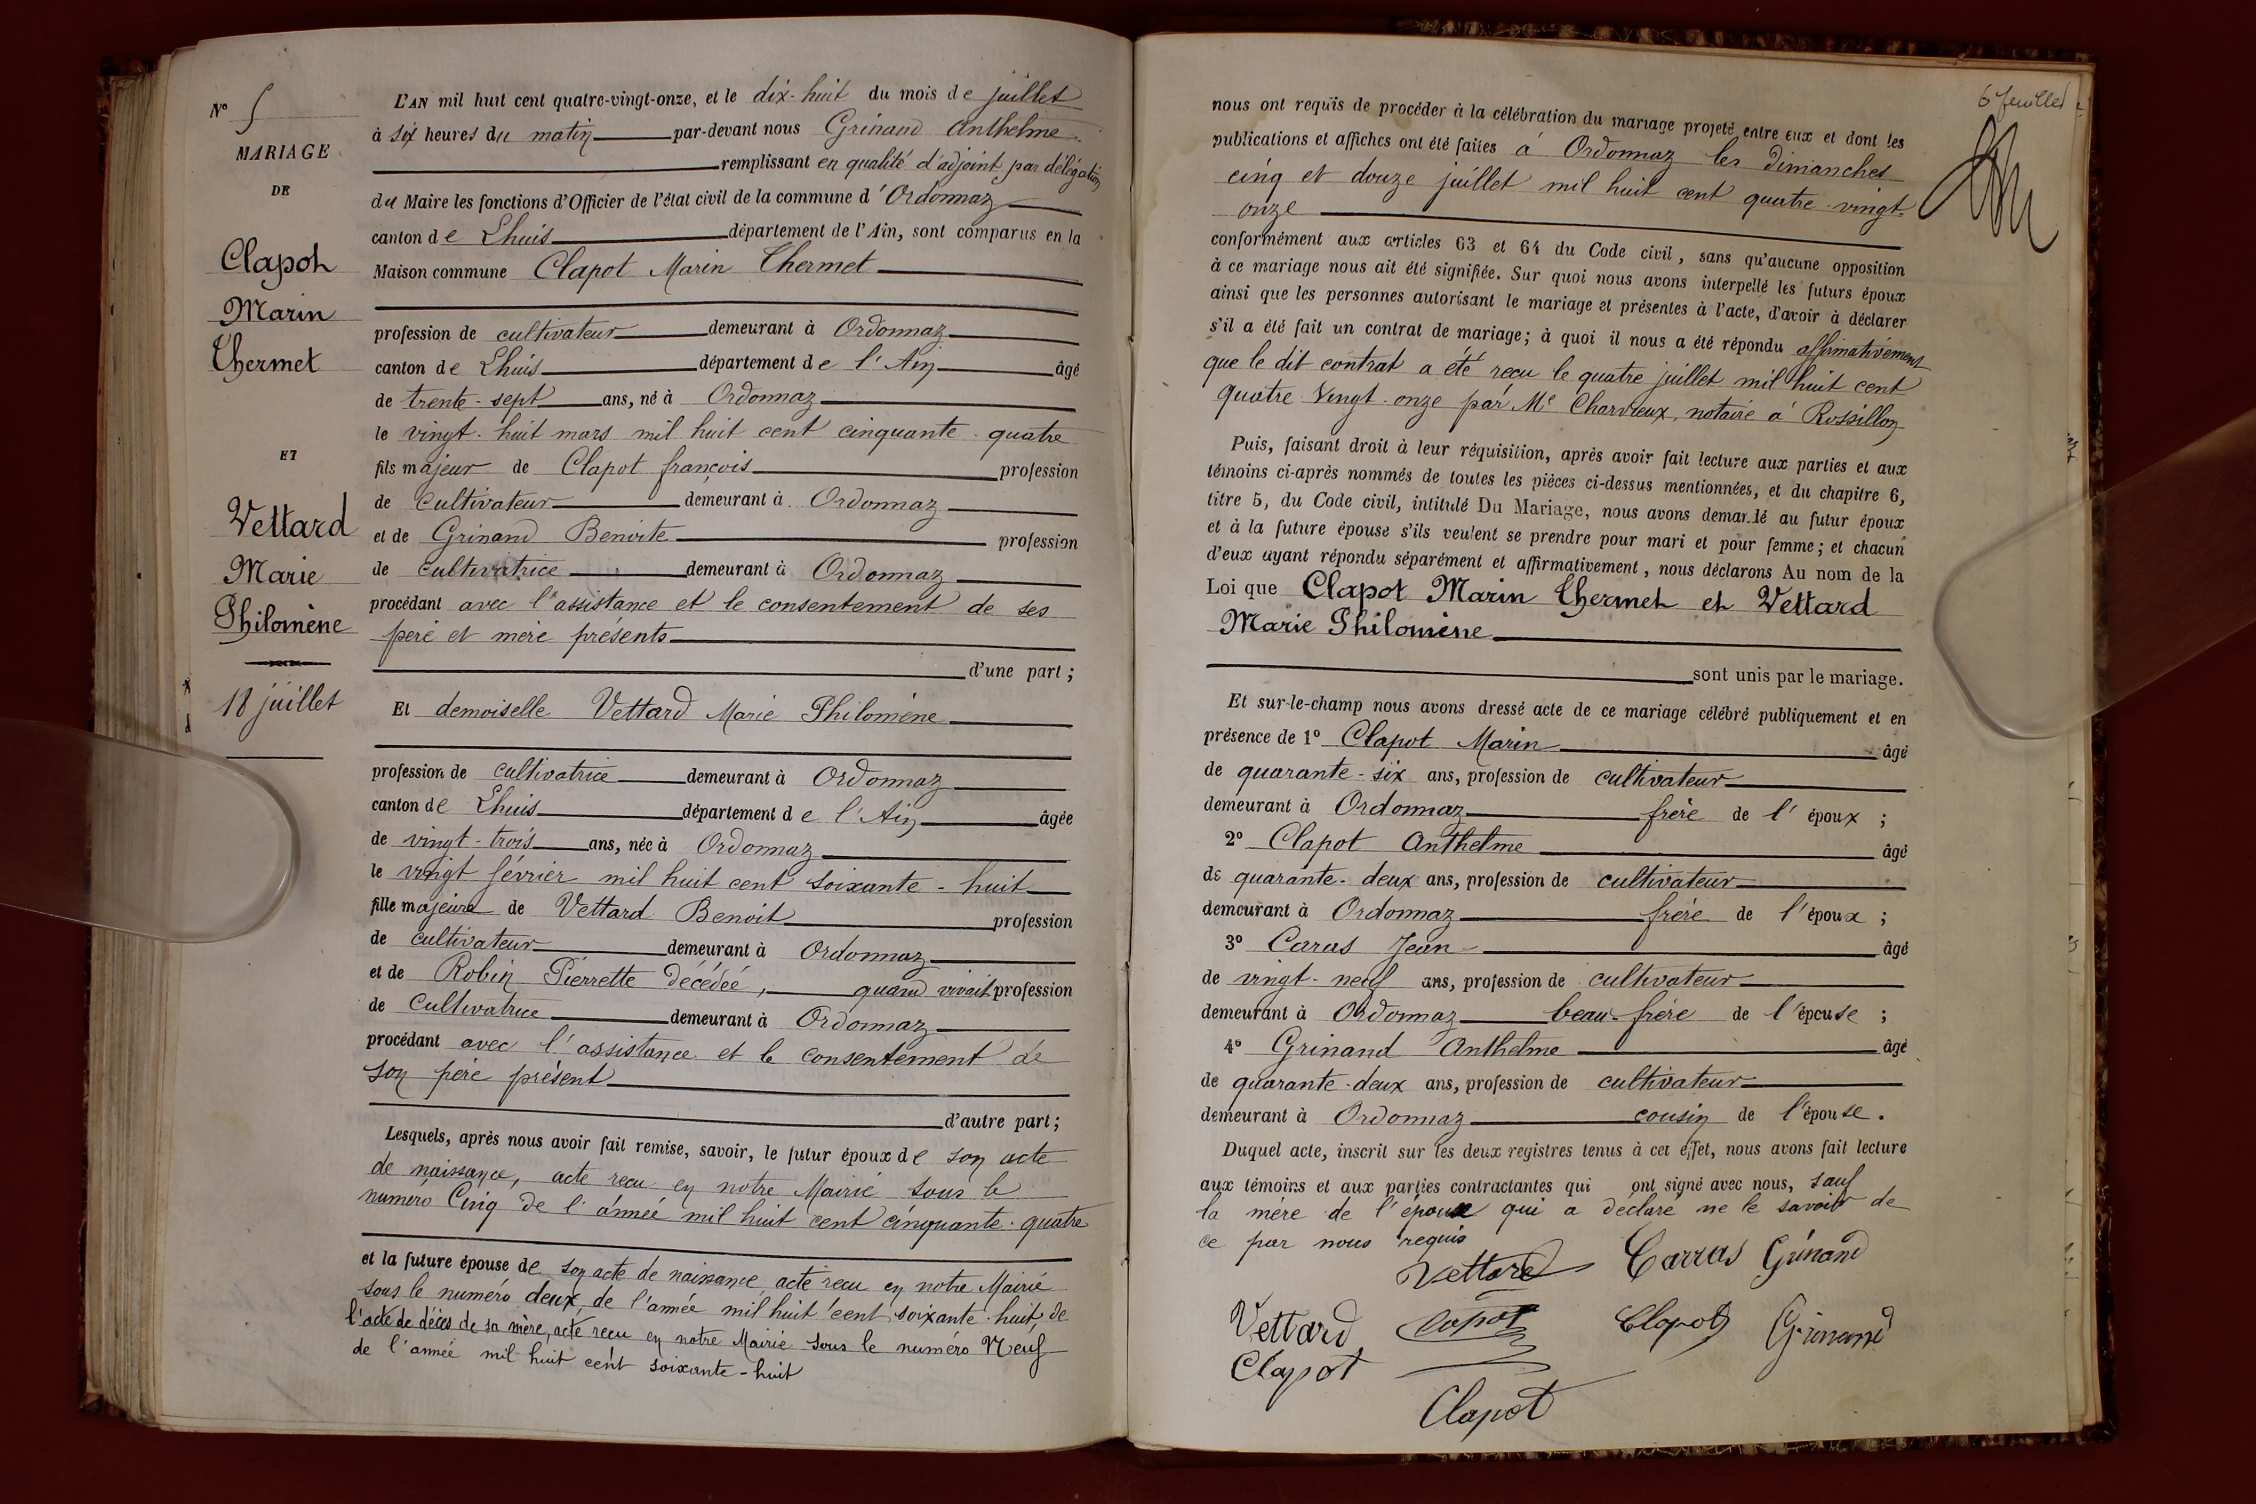 N° 5
MARIAGE
DE
Clapot
Marin
Thermet
ET
Vettard
Marie
Philomène
18 juillet
L'AN mil huit cent quatre-vingt-onze, et le dix-huit du mois de juillet
à six heures du matin par-devant nous Grinand Anthelme
remplissant en qualité d'adjoint par délégation
du Maire les fonctions d'Officier de l'état civil de la commune d'Ordonnaz
canton de Lhuis département de l'Ain, sont comparus en la
Maison commune Clapot Marin Thermet
profession de cultivateur demeurant à Ordonnaz
canton de Lhuis département de l'Ain âgé
de trente-sept ans, né à Ordonnaz
le vingt-huit mars mil huit cent cinquante-quatre
fils majeur de Clapot françois profession
de cultivateur demeurant à Ordonnaz
et de Grinand Benoite profession
de cultivatrice demeurant à Ordonnaz
procédant avec l'assistance et le consentement de ses
père et mère présents
d'une part ;
Et demoiselle Vettard Marie Philomène
profession de cultivatrice demeurant à Ordonnaz
canton de Lhuis département de l'Ain âgée
de vingt-trois ans, née à Ordonnaz
le vingt février mil huit cent soixante-huit
fille majeure de Vettard Benoit profession
de cultivateur demeurant à Ordonnaz
et de Robin Pierrette décédée, quand vivait profession
de cultivatrice demeurant à Ordonnaz
procédant avec l'assistance et le consentement de
son père présent
d'autre part ;
Lesquels, après nous avoir fait remise, savoir, le futur époux de son acte
de naissance, acte recu en notre Mairie sous le
numéro Cinq de l'année mil huit cent cinquante-quatre
et la future épouse de son acte de naissance, acte recu en notre Mairie
sous le numéro deux, de l'année mil huit cent soixante-huit, de
l'acte de décès de sa mère, acte recu en notre Mairie sous le numéro Neuf
de l'année mil huit cent soixante-huit
6e feuillet
nous ont requis de procéder à la célébration du mariage projeté entre eux et dont les
publications et affiches ont été faites à Ordonnaz les dimanches
cinq et douze juillet mil huit cent quatre-vingt-
onze
conformément aux articles 63 et 64 du Code civil, sans qu'aucune opposition
à ce mariage nous ait été signifiée. Sur quoi nous avons interpellé les futurs époux
ainsi que les personnes autorisant le mariage et présentes à l'acte, d'avoir à déclarer
s'il a été fait un contrat de mariage ; à quoi il nous a été répondu affirmativement
que le dit contrat a été recu le quatre juillet mil huit cent
quatre vingt-onze par Me Charvieux, notaire à Rossillon
Puis, faisant droit à leur réquisition, après avoir fait lecture aux parties et aux
témoins ci-après nommés de toutes les pièces ci-dessus mentionnées, et du chapitre 6,
titre 5, du Code civil, intitulé Du Mariage, nous avons demandé au futur époux
et à la future épouse s'ils veulent se prendre pour mari et pour femme ; et chacun
d'eux ayant répondu séparément et affirmativement, nous déclarons Au nom de la
Loi que Clapot Marin Thermet et Vettard
Marie Philomène
sont unis par le mariage.
Et sur-le-champ nous avons dressé acte de ce mariage célébré publiquement et en
présence de 1° Clapot Marin âgé
de quarante-six ans, profession de cultivateur
demeurant à Ordonnaz frère de l'époux ;
2° Clapot Anthelme âgé
de quarante-deux ans, profession de cultivateur
demeurant à Ordonnaz frère de l'époux ;
3° Caras Jean âgé
de vingt-neuf ans, profession de cultivateur
demeurant à Ordonnaz beau-frère de l'épouse ;
4° Grinand Anthelme âgé
de quarante-deux ans, profession de cultivateur
demeurant à Ordonnaz cousin de l'épouse.
Duquel acte, inscrit sur les deux registres tenus à cet effet, nous avons fait lecture
aux témoins et aux parties contractantes qui ont signé avec nous, sauf
la mère de l'époux qui a déclaré ne le savoir de
ce par nous requis
Vettard Carras Grinand
Vettard Clapot Clapot Grinand
Clapot
Clapot